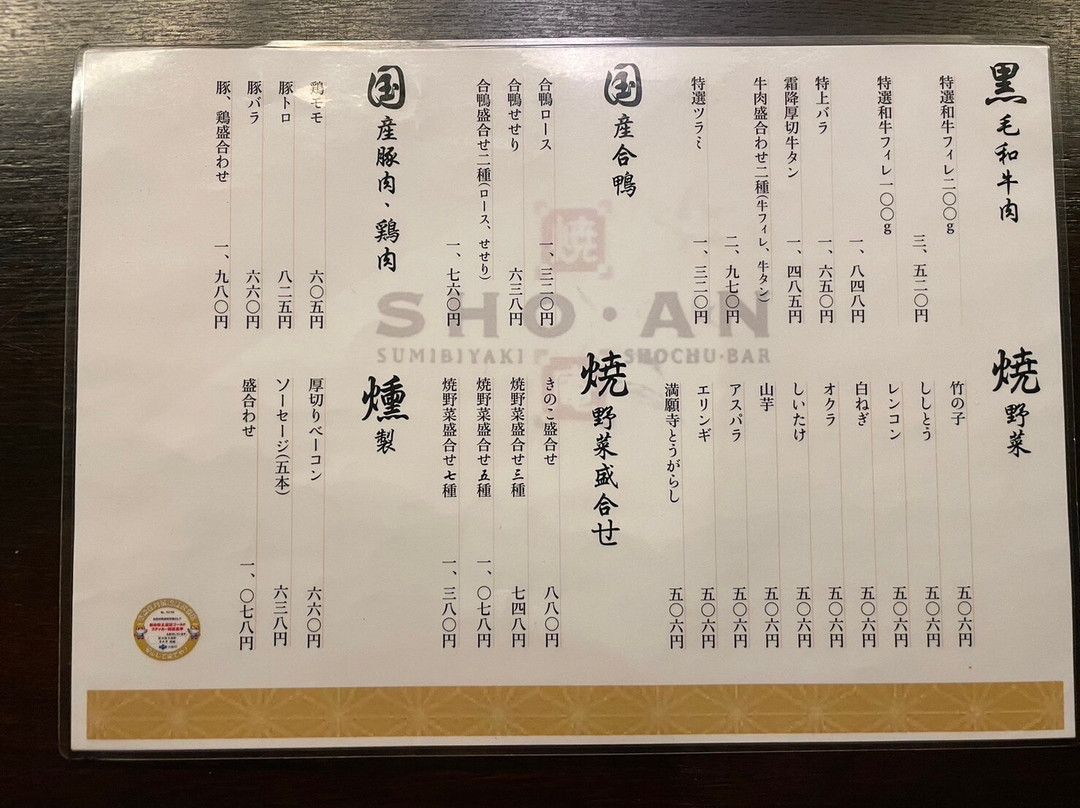 黒毛和牛肉
特選和牛フィレ二〇〇g 三、五二〇円
特選和牛フィレ一〇〇g 一、八四八円
特上バラ 一、六五〇円
霜降厚切牛タン 一、四八五円
牛肉盛合わせ二種(牛フィレ、牛タン) 二、九七〇円
特選ツラミ 一、三二〇円
国産合鴨
合鴨ロース 一、三二〇円
合鴨せせり 六三八円
合鴨盛合せ二種(ロース、せせり) 一、七六〇円
国産豚肉、鶏肉
鶏モモ 六〇五円
豚トロ 八二五円
豚バラ 六六〇円
豚、鶏盛合わせ 一、九八〇円
焼野菜
竹の子 五〇六円
ししとう 五〇六円
レンコン 五〇六円
白ねぎ 五〇六円
オクラ 五〇六円
しいたけ 五〇六円
山芋 五〇六円
アスパラ 五〇六円
エリンギ 五〇六円
満願寺とうがらし 五〇六円
焼野菜盛合せ
きのこ盛合せ 八八〇円
焼野菜盛合せ三種 七四八円
焼野菜盛合せ五種 一、〇七八円
焼野菜盛合せ七種 一、三八〇円
燻製
厚切りベーコン 六六〇円
ソーセージ(五本) 六三八円
盛合わせ 一、〇七八円
焼
SHO・AN
SUMIBIYAKI SHOCHU・BAR